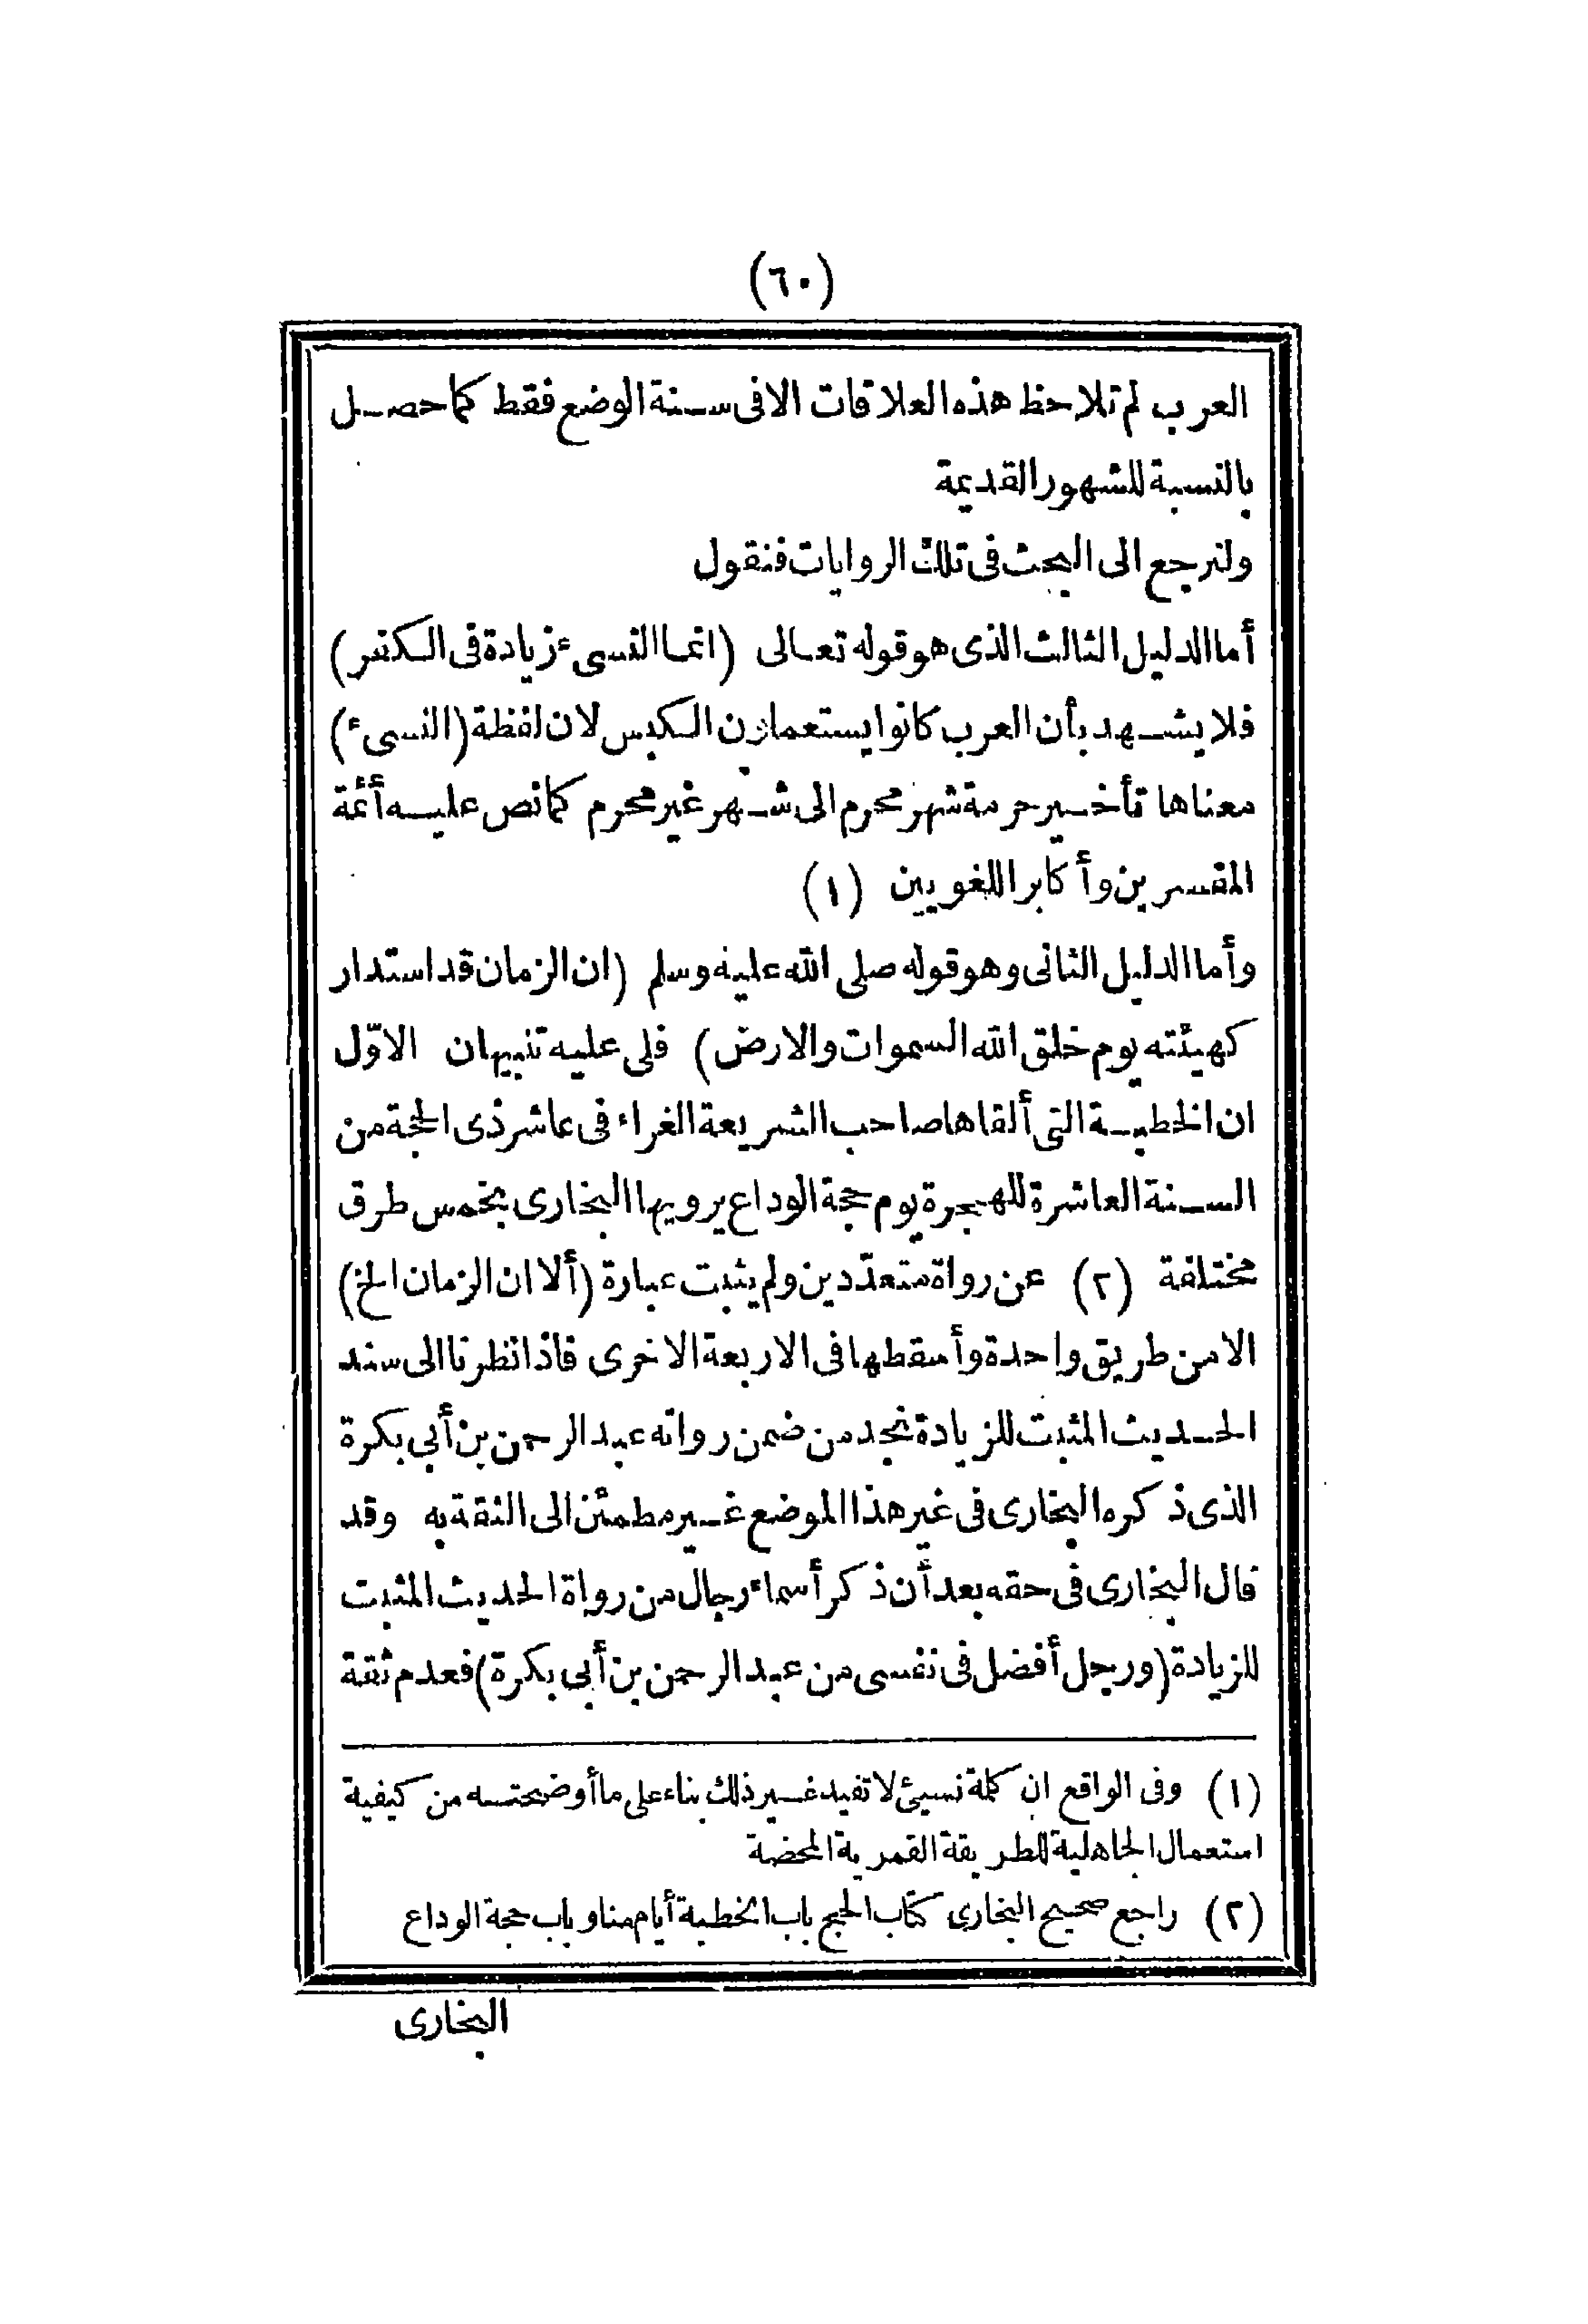 (٦٠)
العرب لم تلاحظ هذه العلاقات الا فى سنة الوضع فقط كما حصل
بالنسبة للشهور القديمة
ولنرجع الى البحث فى تلك الروايات فنقول
أما الدليل الثالث الذى هو قوله تعالى (انما النسىء زيادة فى الكفر)
فلا يشهد بأن العرب كانوا يستعملون الكبس لان لفظة (النسىء)
معناها تأخير حرمة شهر محرم الى شهر غير محرم كما نص عليه أئمة
المفسرين وأكابر اللغويين (١)
وأما الدليل الثانى وهو قوله صلى الله عليه وسلم (ان الزمان قد استدار
كهيئته يوم خلق الله السموات والارض) فلى عليه تنبيهان الاوّل
ان الخطبة التى ألقاها صاحب الشريعة الغراء فى عاشر ذى الحجة من
السنة العاشرة للهجرة يوم حجة الوداع يرويها البخارى بخمس طرق
مختلفة (٢) عن رواة متعدّدين ولم يثبت عبارة (ألا ان الزمان الخ)
الا من طريق واحدة وأسقطها فى الاربعة الاخرى فاذا نظرنا الى سند
الحديث المثبت للزيادة نجد من ضمن رواته عبد الرحمن بن أبى بكرة
الذى ذكره البخارى فى غير هذا الموضع غير مطمئن الى الثقة به وقد
قال البخارى فى حقه بعد أن ذكر أسماء رجال من رواة الحديث المثبت
للزيادة (ورجل أفضل فى نفسى من عبد الرحمن بن أبى بكرة) فعدم ثقة
(١) وفى الواقع ان كلمة نسيئ لا تفيد غير ذلك بناء على ما أوضحته من كيفية
استعمال الجاهلية للطريقة القمرية المحضة
(٢) راجع صحيح البخارى كتاب الحج باب الخطبة أيام منا وباب حجة الوداع
البخارى